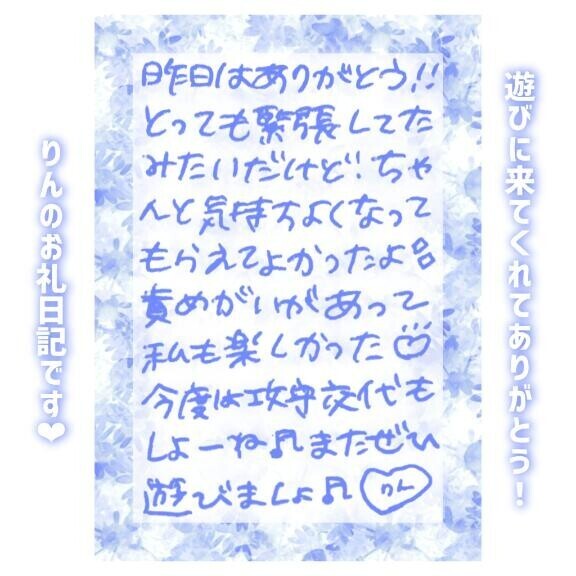 遊びに来てくれてありがとう!
昨日はありがとう!!
とっても緊張してた
みたいだけど!ちゃ
んと気持ちよくなって
もらえてよかったよ
責めがいがあって
私も楽しかった
今度は攻守交代も
しよーね♫またぜひ
遊びましょ♫ りん
りんのお礼日記です❤